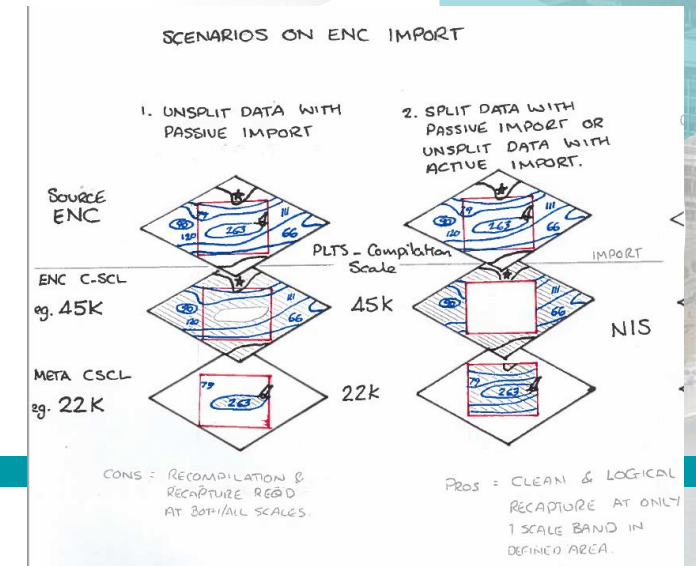 SCENARIOS ON ENC IMPORT
1. UNSPLIT DATA WITH
PASSIVE IMPORT
2. SPLIT DATA WITH
PASSIVE IMPORT OR
UNSPLIT DATA WITH
ACTIVE IMPORT.
SOURCE
ENC
79
120
263
111
66
79
120
263
111
66
PLTS_Compilation
Scale
IMPORT
ENC C-SCL
eg. 45K
120
111
66
45K
120
111
66
NIS
META CSCL
eg. 22K
79
263
22K
79
263
CONS = RECOMPILATION &
RECAPTURE REQD
AT BOTH/ALL SCALES.
PROS = CLEAN & LOGICAL
RECAPTURE AT ONLY
1 SCALE BAND IN
DEFINED AREA.